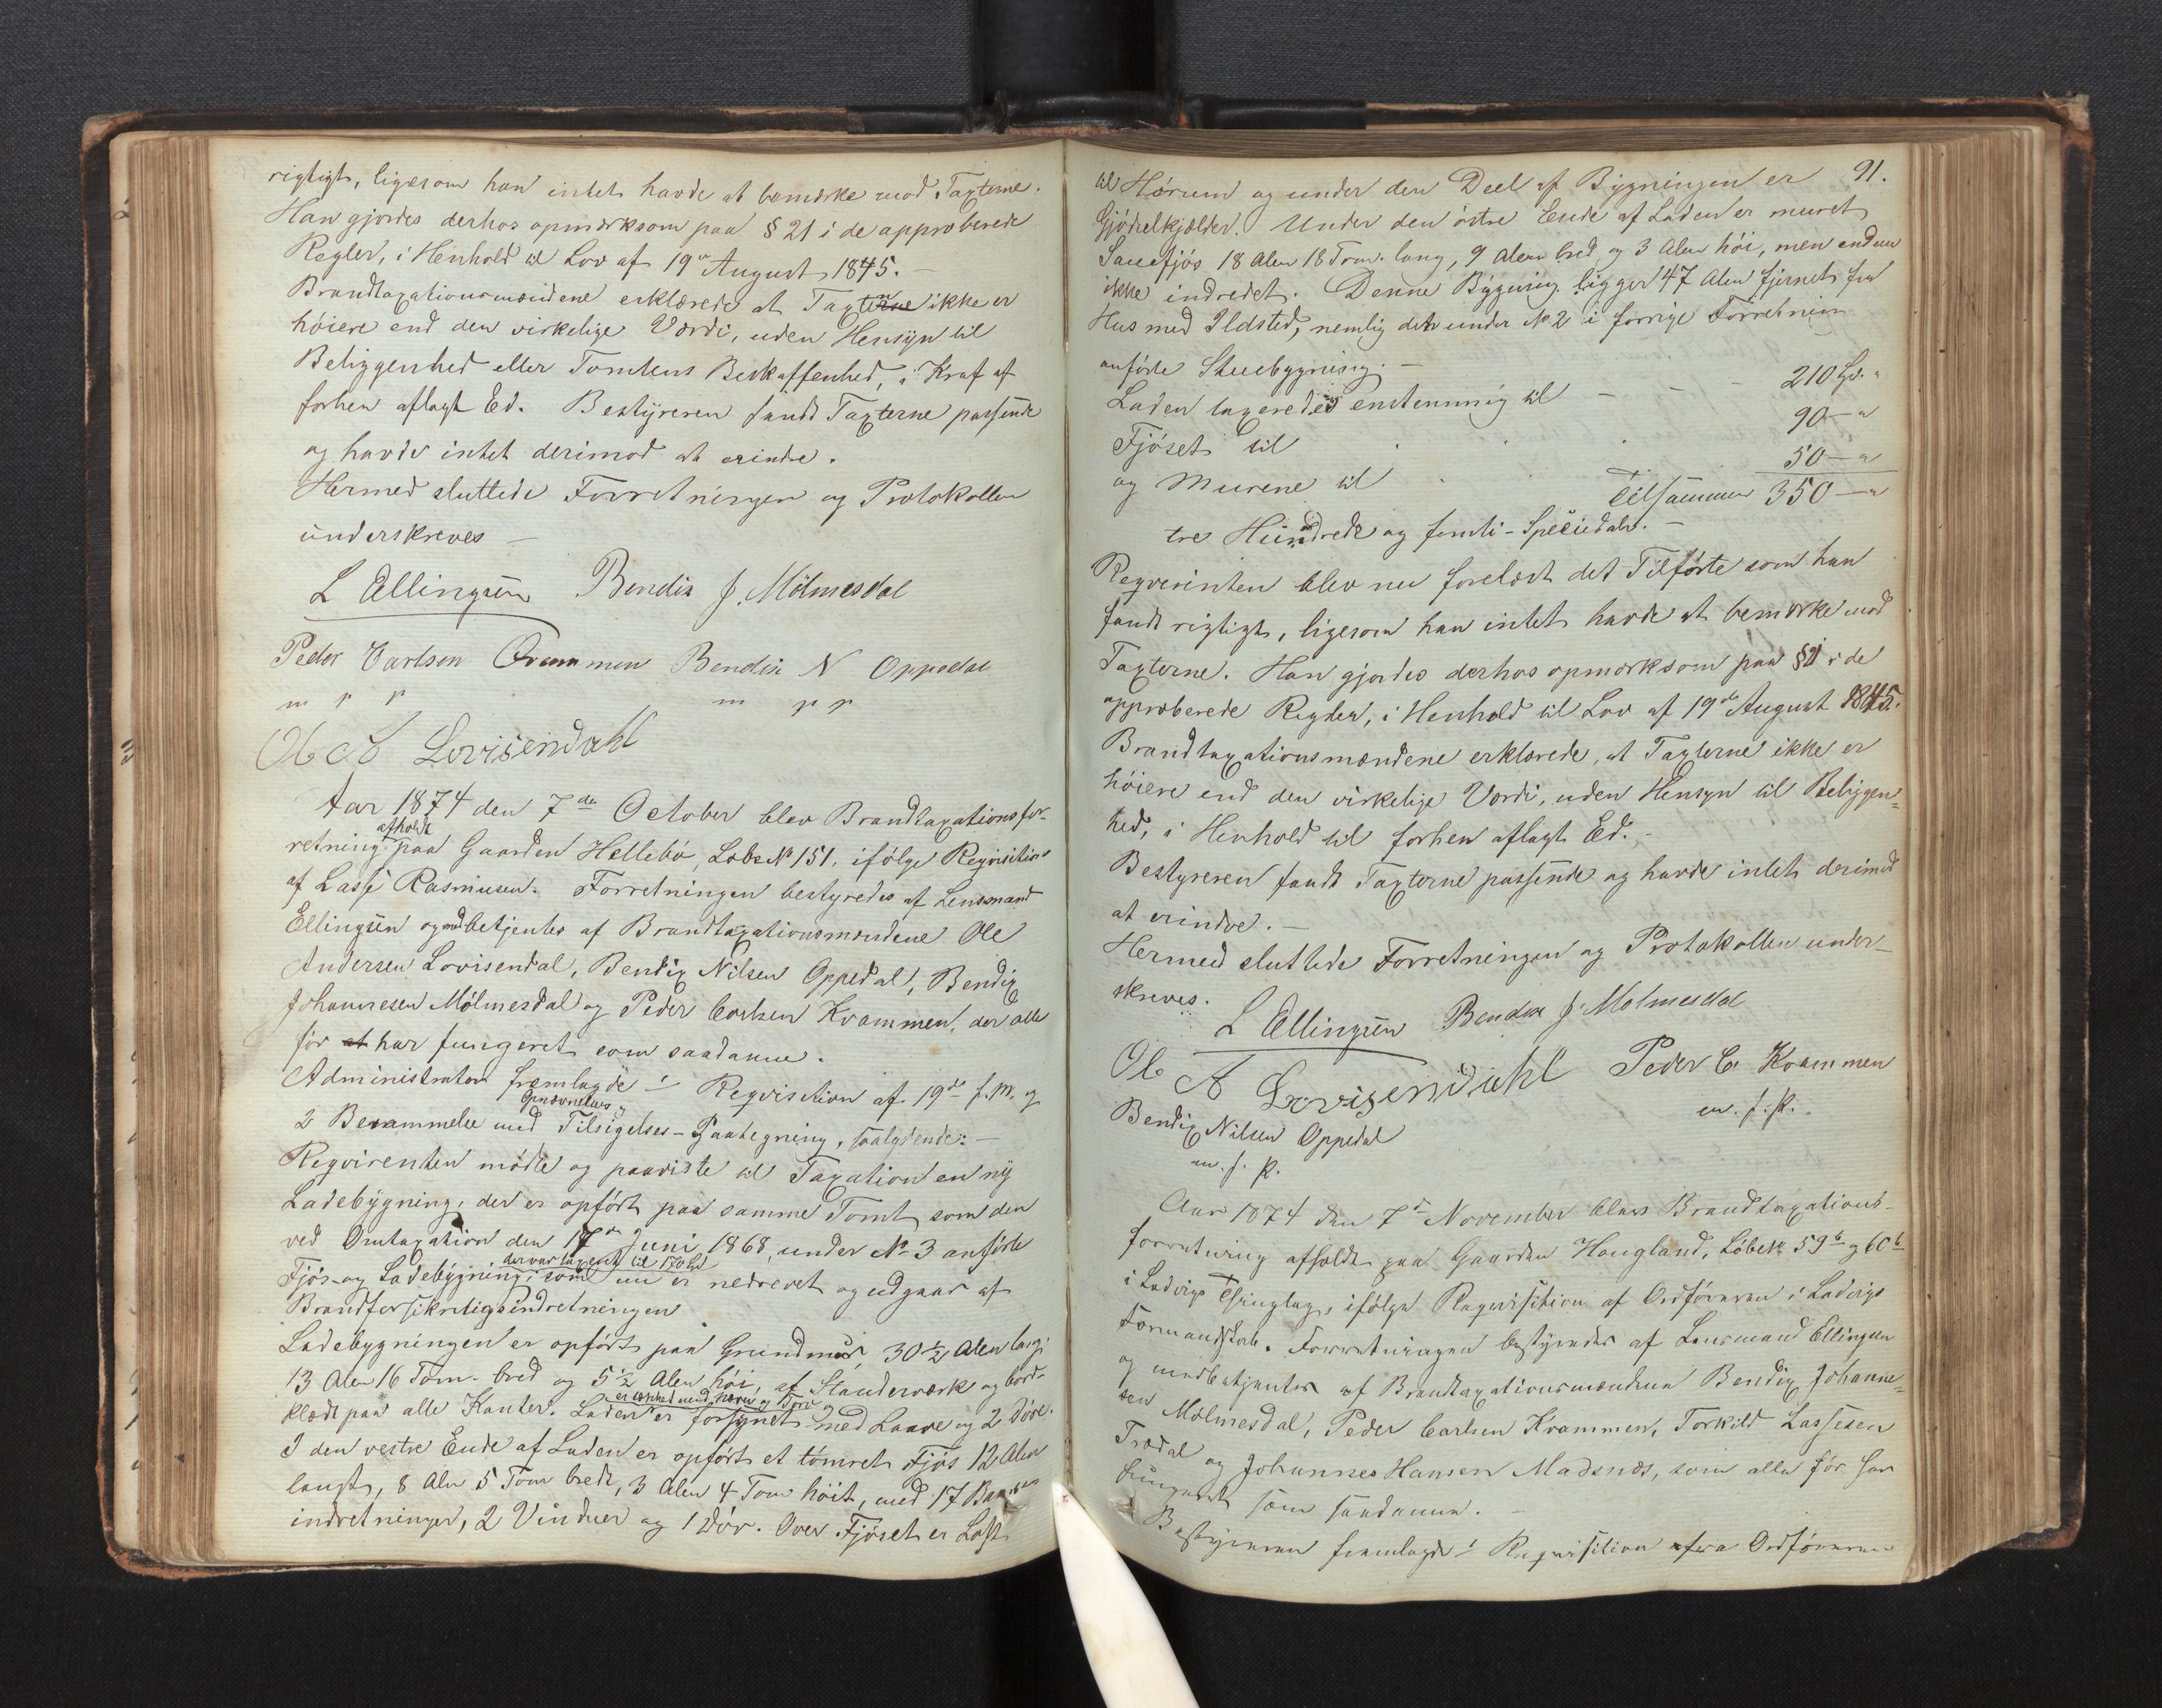 rigtigt, ligesom han intet havde at bemærke mod Taxterne.
Han gjordes derhos opmærksom paa § 21 i de approberede
Regler, i Henhold til Lov af 19de August 1845. –
Brandtaxationsmændene erklærede at Taxterne ikke er
høiere end den virkelige Værdi, uden Hensyn til
Beliggenhed eller Tomtens Beskaffenhed, i Kraft af
forhen aflagt Ed. Bestyreren fandt Taxterne passende
og havde intet derimod at erindre.
Hermed sluttede Forretningen og Protokollen
underskreves –
L Ellingsen Bendix J. Mölmesdal
Peder Carlsen Qvammen Bendix N Oppedal
m p p m p p
Ole A Lovisendahl
Aar 1874 den 7de October blev Brandtaxationsfor-
retning afholdt paa Gaarden Hellebø, Løbe No 151, ifølge Reqvisition
af Lasse Rasmusen. Forretningen bestyredes af Lensmand
Ellingsen og medbetjentes af Brandtaxationsmændene Ole
Andersen Lovisendal, Bendix Nilsen Oppedal, Bendix
Johannesen Mölmesdal og Peder Carlsen Kvammen, der alle
før at har fungeret som saadanne.
Administrator fremlagde 1 Reqvisition af 19de f. M. og
2 Opnævnelses Berammelse med Tilsigelses-Paategning, saalydende: –
Reqvirenten mødte og paaviste til Taxation en ny
Ladebygning, der er opført paa samme Tomt som den
ved Omtaxation den 17de Juni 1868, under No 3 anførte
Fjøs- og Ladebygning, der var taxeret til 170 Spd som nu er nedrevet og udgaar af
Brandforsikringsindretningen
Ladebygningen er opført paa Grundmur, 30½ Alen lang,
13 Alen 16 Tom. bred og 5½ Alen høi, af Standerværk og bord-
klædt paa alle Kanter, er tækket med Næver og Torv Laden er forsynet med Laave og 2 Døre.
I den vestre Ende af Laden er opført et tømret Fjøs 12 Alen
langt, 8 Alen 5 Tom bredt, 3 Alen 4 Tom høit, med 17
indretninger, 2 Vinduer og 1 Dør. Over Fjøset er Loft
91.
til Hørum og under den Deel af Bygningen er
Gjødselkjælder. Under den østre Ende af Laden er muret
Sauefjøs 18 Alen 18 Tom. lang, 9 Alen bred og 3 Alen høi, men endnu
ikke indredet. Denne Bygning ligger 47 Alen fjernet fra
Hus med Ildsted, nemlig det under No 2 i forrige Forretning
anførte Stuebygning. –
Laden taxeredes enstemmig til – – – 210 Spd. "
Fjøset til . . . 90 – "
og Murene til . . . 50 – "
Tilsammen 350 – "
tre Hundrede og femti – Speciedaler. –
Reqvirenten blev nu forelæst det Tilførte som han
fandt rigtigt, ligesom han intet havde at bemærke mod
Taxterne. Han gjordes derhos opmærksom paa § 21 i de
approberede Regler, i Henhold til Lov af 19de August 1845.
Brandtaxationsmændene erklærede, at Taxterne ikke er
høiere end den virkelige Værdi, uden Hensyn til Beliggen-
hed, i Henhold til forhen aflagt Ed. –
Bestyreren fandt Taxterne passende og havde intet derimod
at erindre. –
Hermed sluttede Forretningen og Protokollen under-
skreves.
L Ellingsen Bendix J. Mölmesdal
Ole A Lovisendahl Peder C. Kvammen
m. f. P.
Bendix Nilsen Oppedal
m. f. P.
Aar 1874 den 7de November blev Brandtaxations-
forretning afholdt paa Gaarden Hougland, Løbe No 59b og 60b
i Ladvigs Thinglag, ifølge Reqvisition af Ordføreren i Ladvigs
Formandskab. Forretningen bestyredes af Lensmand Ellingsen
og medbetjentes af Brandtaxationsmændene Bendix Johanne-
sen Mölmesdal, Peder Carlsen Kvammen, Torkild Lassesen
Trædal og Johannes Hansen Madsnæs, som alle før har
fungeret som saadanne. –
Bestyreren fremlagde 1 Reqvisition fra Ordføreren